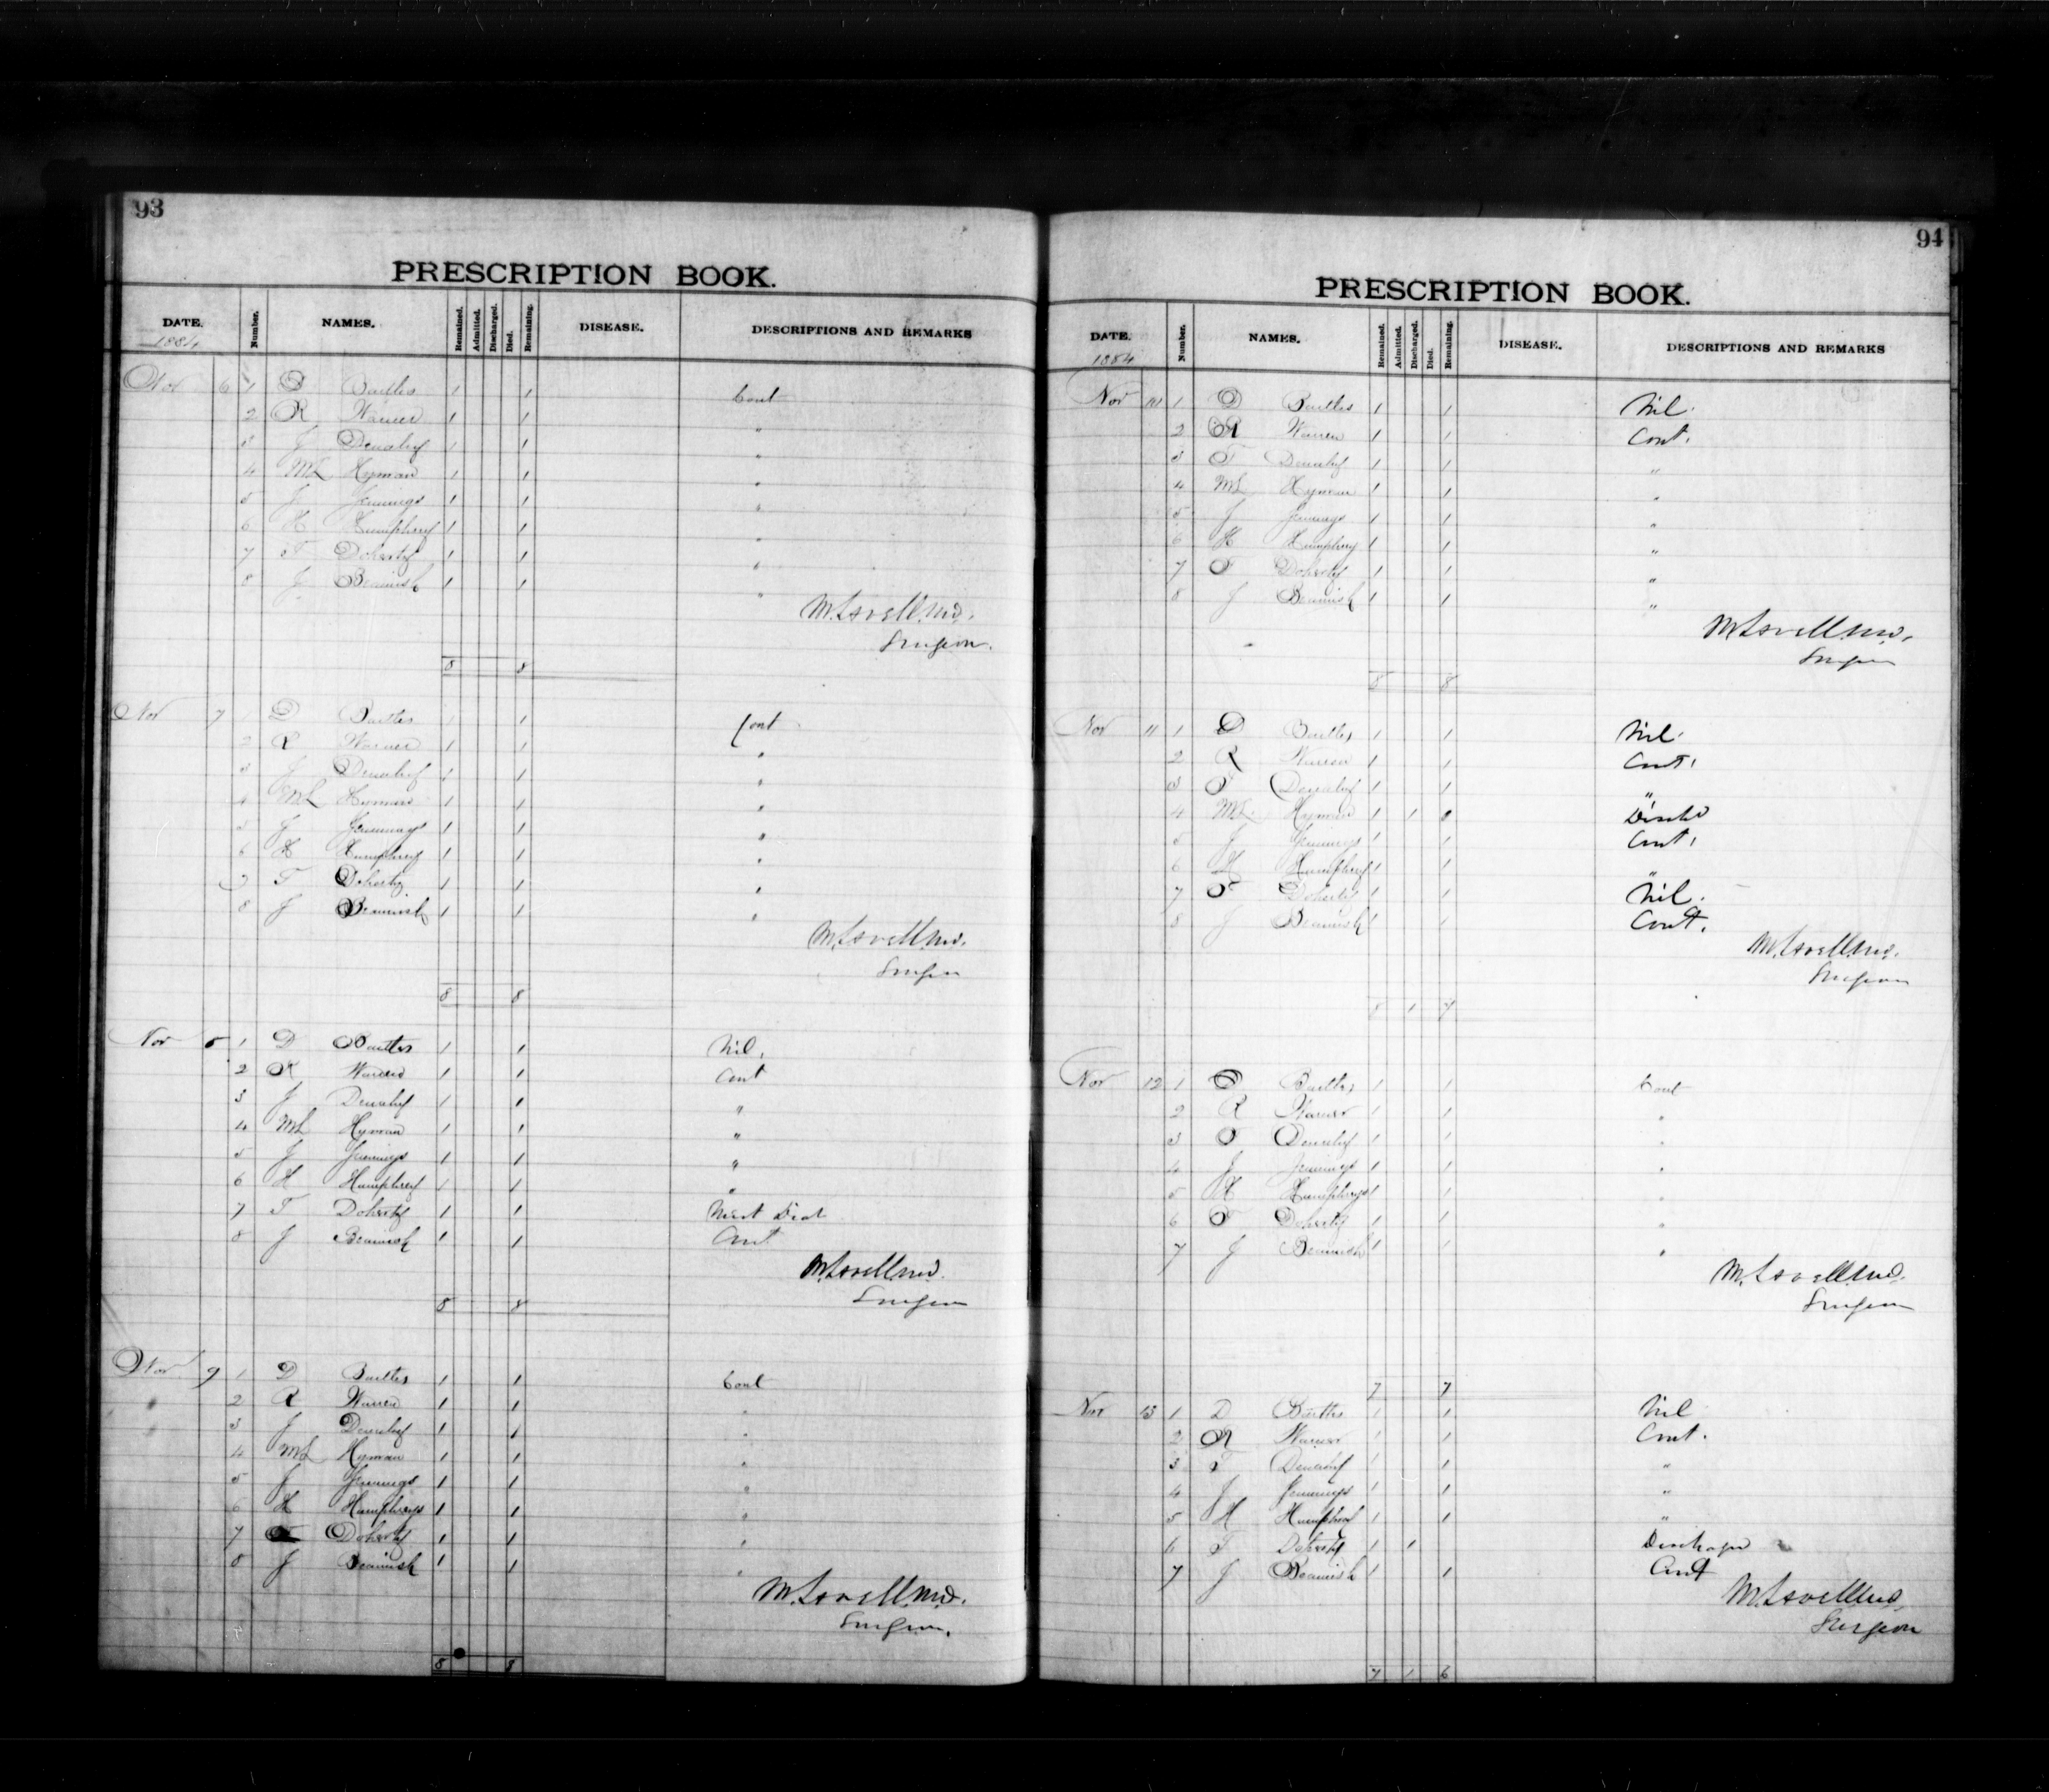 93
PRESCRIPTION BOOK.
DATE. Number. NAMES. Remained. Admitted. Discharged. Died. Remaining. DISEASE. DESCRIPTIONS AND REMARKS
1884
Nov 6 1 D 1 1 Cont
2 R Warner 1 1 "
3 J 1 1 "
4 ML Hyman 1 1 "
5 J Jennings 1 1 "
6 H Humphrey 1 1 "
7 T Doherty 1 1 "
8 J Beamish 1 1 "
M. Lavell M.D.
Surgeon.
8 8
Nov 7 1 D 1 1 Cont
2 R Warner 1 1 "
3 J 1 1 "
4 ML Hyman 1 1 "
5 J Jennings 1 1 "
6 H Humphrey 1 1 "
7 T Doherty 1 1 "
8 J Beamish 1 1 "
M. Lavell M.D.
Surgeon
8 8
Nov 8 1 D 1 1 Nil.
2 R 1 1 Cont
3 J 1 1 "
4 ML Hyman 1 1 "
5 J Jennings 1 1 "
6 H Humphrey 1 1 "
7 T Doherty 1 1 Diet
8 J Beamish 1 1 Cont
M. Lavell M.D.
Surgeon
8 8
Nov 9 1 D 1 1 Cont
2 R Warren 1 1 "
3 J 1 1 "
4 ML Hyman 1 1 "
5 J Jennings 1 1 "
6 H Humphreys 1 1 "
7 Doherty 1 1 "
8 J Beamish 1 1 "
M. Lavell M.D.
Surgeon.
8 8
94
PRESCRIPTION BOOK.
DATE. Number. NAMES. Remained. Admitted. Discharged. Died. Remaining. DISEASE. DESCRIPTIONS AND REMARKS
1884
Nov 10 1 D 1 1 Nil.
2 R Warren 1 1 Cont.
3 T 1 1 "
4 ML Hyman 1 1 "
5 J Jennings 1 1 "
6 H Humphrey 1 1 "
7 T Doherty 1 1 "
8 J Beamish 1 1 "
M. Lavell M.D.
Surgeon
8 8
Nov 11 1 D 1 1 Nil.
2 R Warren 1 1 Cont.
3 T 1 1 "
4 ML Hyman 1 1 Dischd
5 J Jennings 1 1 Cont.
6 H Humphrey 1 1 "
7 T Doherty 1 1 Nil.
8 J Beamish 1 1 Cont.
M. Lavell M.D.
Surgeon
8 1 7
Nov 12 1 D 1 1 Cont
2 R Warner 1 1 "
3 T 1 1 "
4 J Jennings 1 1 "
5 H Humphreys 1 1 "
6 T Doherty 1 1 "
7 J Beamish 1 1 "
M. Lavell M.D.
Surgeon
7 7
Nov 13 1 D 1 1 Nil
2 R Warner 1 1 Cont.
3 T 1 1 "
4 J Jennings 1 1 "
5 H 1 1 "
6 T Doherty 1 1
7 J Beamish 1 1 Cont
M. Lavell M.D.
Surgeon
7 1 6